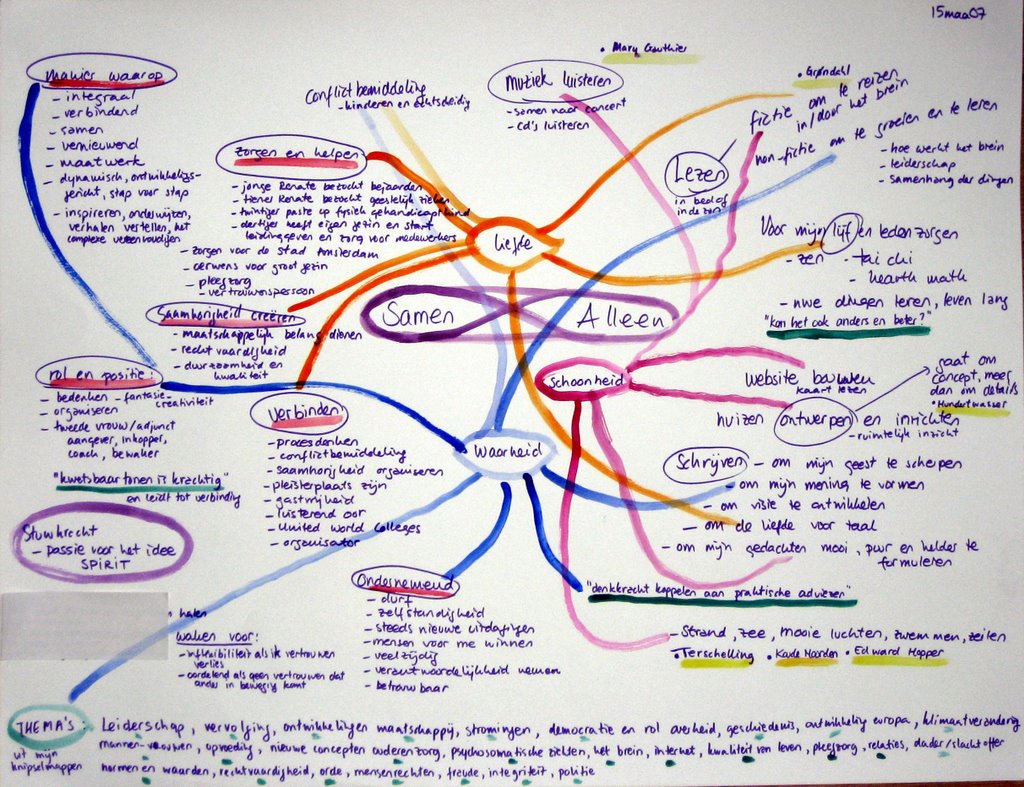 15maa07
• Mary Gauthier
manier waarop
- integraal
- verbindend
- samen
- vernieuwend
- maatwerk
- dynamisch, ontwikkelings-
gericht, stap voor stap
- inspireren, onderwijzen,
verhalen vertellen, het
complexe vereenvoudigen
Conflictbemiddeling
- kinderen en echtscheidig
muziek luisteren
- samen naar concert
- cd's luisteren
• Grøndahl
fictie om te reizen
in/door het brein
non-fictie om te groeien en te leren
- hoe werkt het brein
- leiderschap
- samenhang der dingen
Lezen
in bed of
in de zon
zorgen en helpen
- jonge Renate bezocht bejaarden
- tiener Renate bezocht geestelijk zieken
- twintiger paste op fysiek gehandicapt kind
- dertiger heeft eigen gezin en start
leidinggeven en zorg voor medewerkers
- zorgen voor de stad Amsterdam
- oerwens voor groot gezin
- pleegzorg
- vertrouwenspersoon
liefde
Voor mijn lijf en leden zorgen
- zen
- tai chi
- hearth math
- nwe dingen leren, leven lang
"kan het ook anders en beter?"
Samen
Alleen
Saamhorigheid creëren
- maatschappelijk belang dienen
- rechtvaardigheid
- duurzaamheid en
kwaliteit
rol en positie:
- bedenken - fantasie-
creativiteit
- organiseren
- tweede vrouw/adjunct
aangever, inkopper,
coach, bewaker
"kwetsbaar tonen is krachtig"
en leidt tot verbinding
Stuwkracht
- passie voor het idee
SPIRIT
verbinden
- procesdenken
- conflictbemiddeling
- saamhorigheid organiseren
- pleisterplaats zijn
- gastvrijheid
- luisterend oor
- United World Colleges
- organisator
Schoonheid
website bouwen
kaart lezen
huizen ontwerpen en inrichten
- ruimtelijk inzicht
gaat om
concept, meer
dan om details
• Hundertwasser
Waarheid
Schrijven - om mijn geest te scherpen
- om mijn mening te vormen
- om visie te ontwikkelen
- om de liefde voor taal
- om mijn gedachten mooi, puur en helder te
formuleren
"denkkracht koppelen aan praktische adviezen"
Ondernemend
- durf
- zelfstandigheid
- steeds nieuwe uitdagingen
- mensen voor me winnen
- veelzijdig
- verantwoordelijkheid nemen
- betrouwbaar
halen
waken voor:
- inflexibiliteit als ik vertrouwen
verlies
- oordelend als geen vertrouwen dat
ander in beweging komt
- Strand, zee, mooie luchten, zwemmen, zeilen
• Terschelling • Kaele Noorden • Edward Hopper
THEMA'S:
uit mijn
knipselmappen
Leiderschap, vervolging, ontwikkelingen maatschappij, stromingen, democratie en rol overheid, geschiedenis, ontwikkeling europa, klimaatverandering
mannen-vrouwen, opvoeding, nieuwe concepten ouderenzorg, psychosomatische ziekten, het brein, internet, kwaliteit van leven, pleegzorg, relaties, dader/slachtoffer
normen en waarden, rechtvaardigheid, orde, mensenrechten, fraude, integriteit, politie